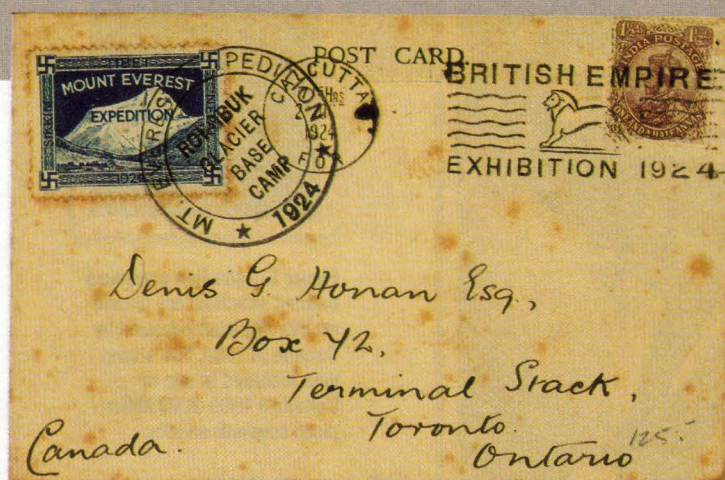 POST CARD.
MOUNT EVEREST
EXPEDITION
1924
MT. EVEREST EXPEDITION
1924
RONGBUK
GLACIER
BASE
CAMP
CALCUTTA
1924
BRITISH EMPIRE
EXHIBITION 1924
INDIA POSTAGE
Denis G. Honan Esq.,
Box 42,
Terminal Stack,
Toronto.
Ontario
Canada.
125.-